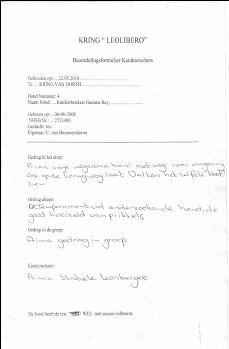 KRING "LEOLIBERO"
Beoordelingsformulier Karakterschets
Gehouden op: ...22.05.2010
Te : ... KRING VAN DORTH
Hond Nummer: 4
Naam Hond: ...Knickerbockers Gamma Ray
Geboren op: ...06-06-2008
NHSB Nr: ...2723406
Geslacht: reu
Eigenaar: C. van Brouwershaven
Gedrag in het dorp:
Prima vrije volgzame hond met oog voor omgeving
Ook op de terugweg laat Dalton hetzelfde beeld
zien
Gedrag alleen:
Temperamentvol onderzoekende hond, die
goed herstelt van prikkels
Gedrag in de groep:
Prima gedrag in groep
Eindconclusie:
Prima Stabiele Leonberger
De hond heeft de test WEL met succes volbracht.